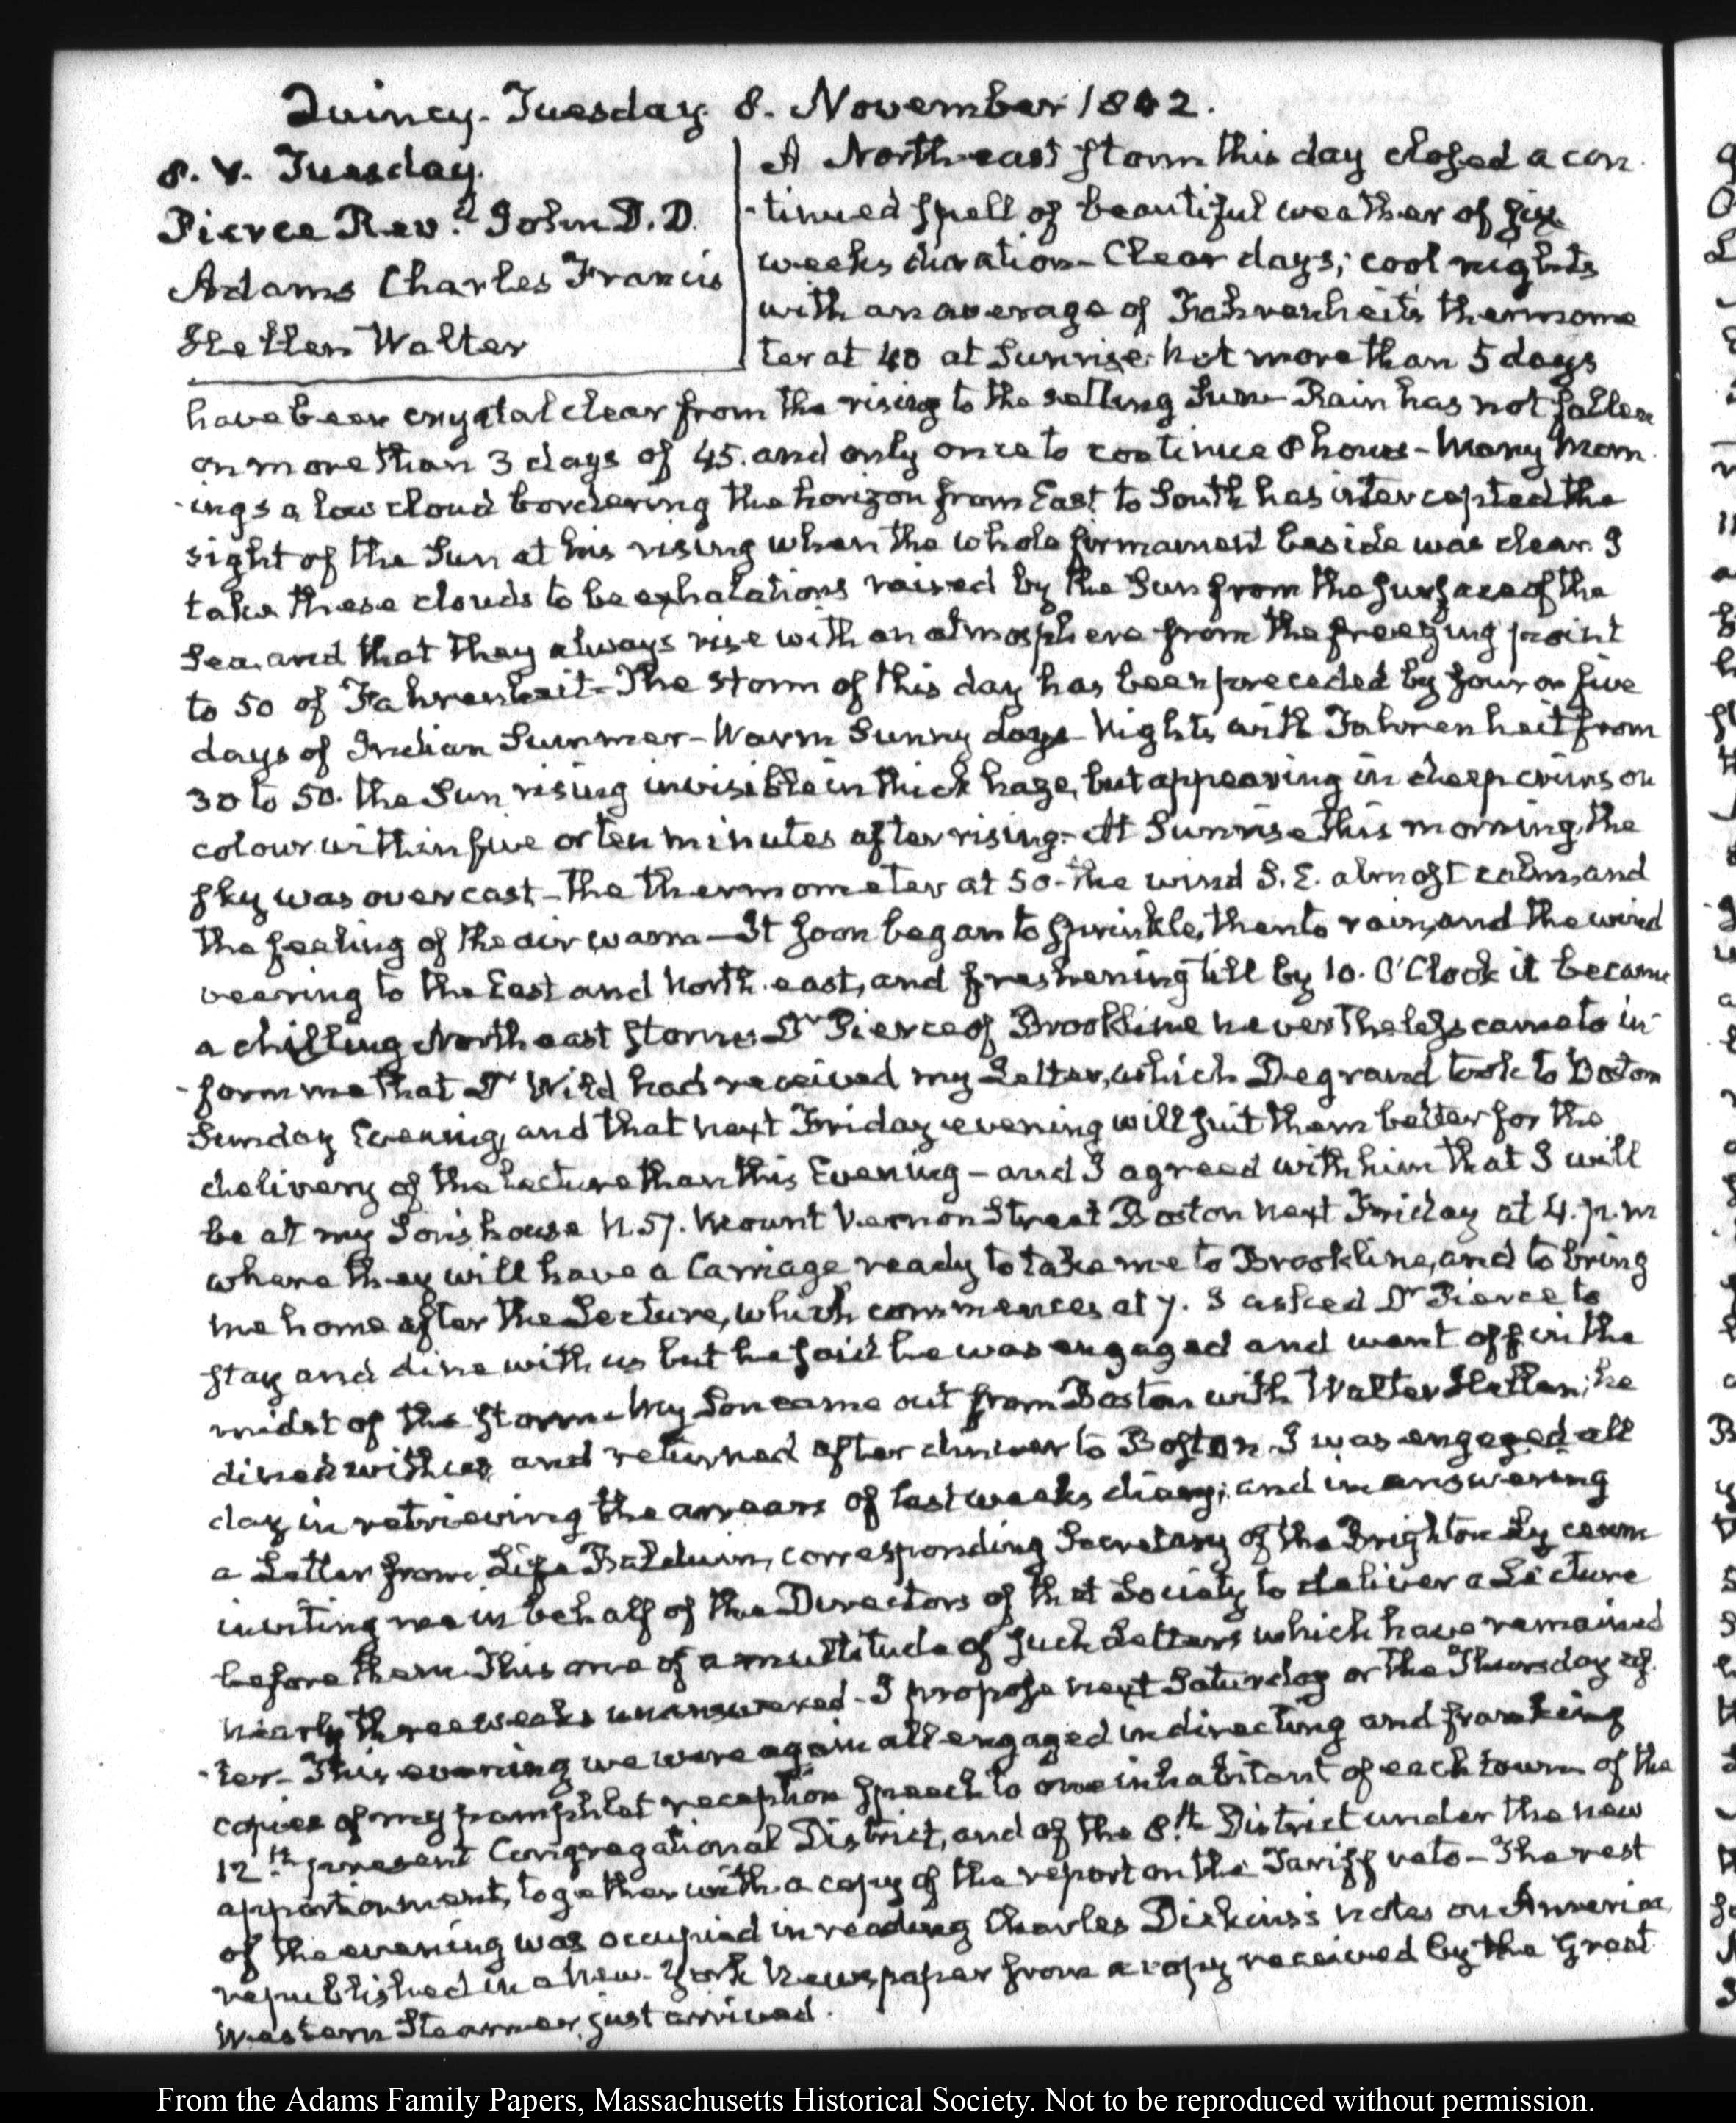 Quincy. Tuesday 8. November 1842.
8. V. Tuesday.
Pierce Revd. John D.D.
Adams Charles Francis
Hellen Walter
A North-east storm this day closed a con
-tinued spell of beautiful weather of six
weeks duration— Clear days; cool nights
with an average of Fahrenheit's thermome
ter at 40 at Sunrise. Not more than 5 days
have been crystal clear from the rising to the setting Sun— Rain has not fallen
on more than 3 days of 45. and only once to continue 8 hours— Many Morn
-ings a low cloud bordering the horizon from East to South has intercepted the
sight of the Sun at his rising when the whole firmament beside was clear. I
take these clouds to be exhalations raised by the Sun from the surface of the
Sea, and that they always rise with an atmosphere from the freezing point
to 50 of Fahrenheit— The storm of this day has been preceded by four or five
days of Indian Summer— Warm Sunny days— Nights with Fahrenheit from
30 to 50. the Sun rising invisible in thick haze, but appearing in deep crimson
colour within five or ten minutes after rising.— At Sunrise this morning, the
sky was overcast— the thermometer at 50— the wind S.E. almost calm, and
the feeling of the air warm— It soon began to sprinkle, then to rain, and the wind
veering to the East and North-east, and freshening till by 10. O'Clock it became
a chilling North east storm. Dr Pierce of Brookline nevertheless came to in
-form me that Dr Wild had received my Letter, which Degrand took to Boston
Sunday Evening, and that next Friday evening will suit them better for the
delivery of the lecture than this Evening— and I agreed with him that I will
be at my Son's house N. 57. Mount Vernon Street Boston next Friday at 4. p.m
where they will have a Carriage ready to take me to Brookline, and to bring
me home after the Lecture, which commences at 7. I asked Dr Pierce to
stay and dine with us but he said he was engaged and went off in the
midst of the storm— My Son came out from Boston with Walter Hellen; he
dined with us, and returned after dinner to Boston. I was engaged all
day in retrieving the arrears of last weeks diary; and in answering
a Letter from Life Baldwin, corresponding Secretary of the Brighton Lyceum
inviting me in behalf of the Directors of that Society to deliver a Lecture
before them. This one of a multitude of such Letters which have remained
nearly three weeks unanswered— I propose next Saturday or the Thursday af
-ter— This evening we were again all engaged in directing and franking
copies of my pamphlet reception speech to one inhabitant of each town of the
12th. present Congregational District, and of the 8th. District under the new
apportionment, together with a copy of the report on the Tariff veto— The rest
of the evening was occupied in reading Charles Dickins's notes on America,
republished in a New-York Newspaper from a copy received by the Great
Western Steamer, just arrived.
From the Adams Family Papers, Massachusetts Historical Society. Not to be reproduced without permission.